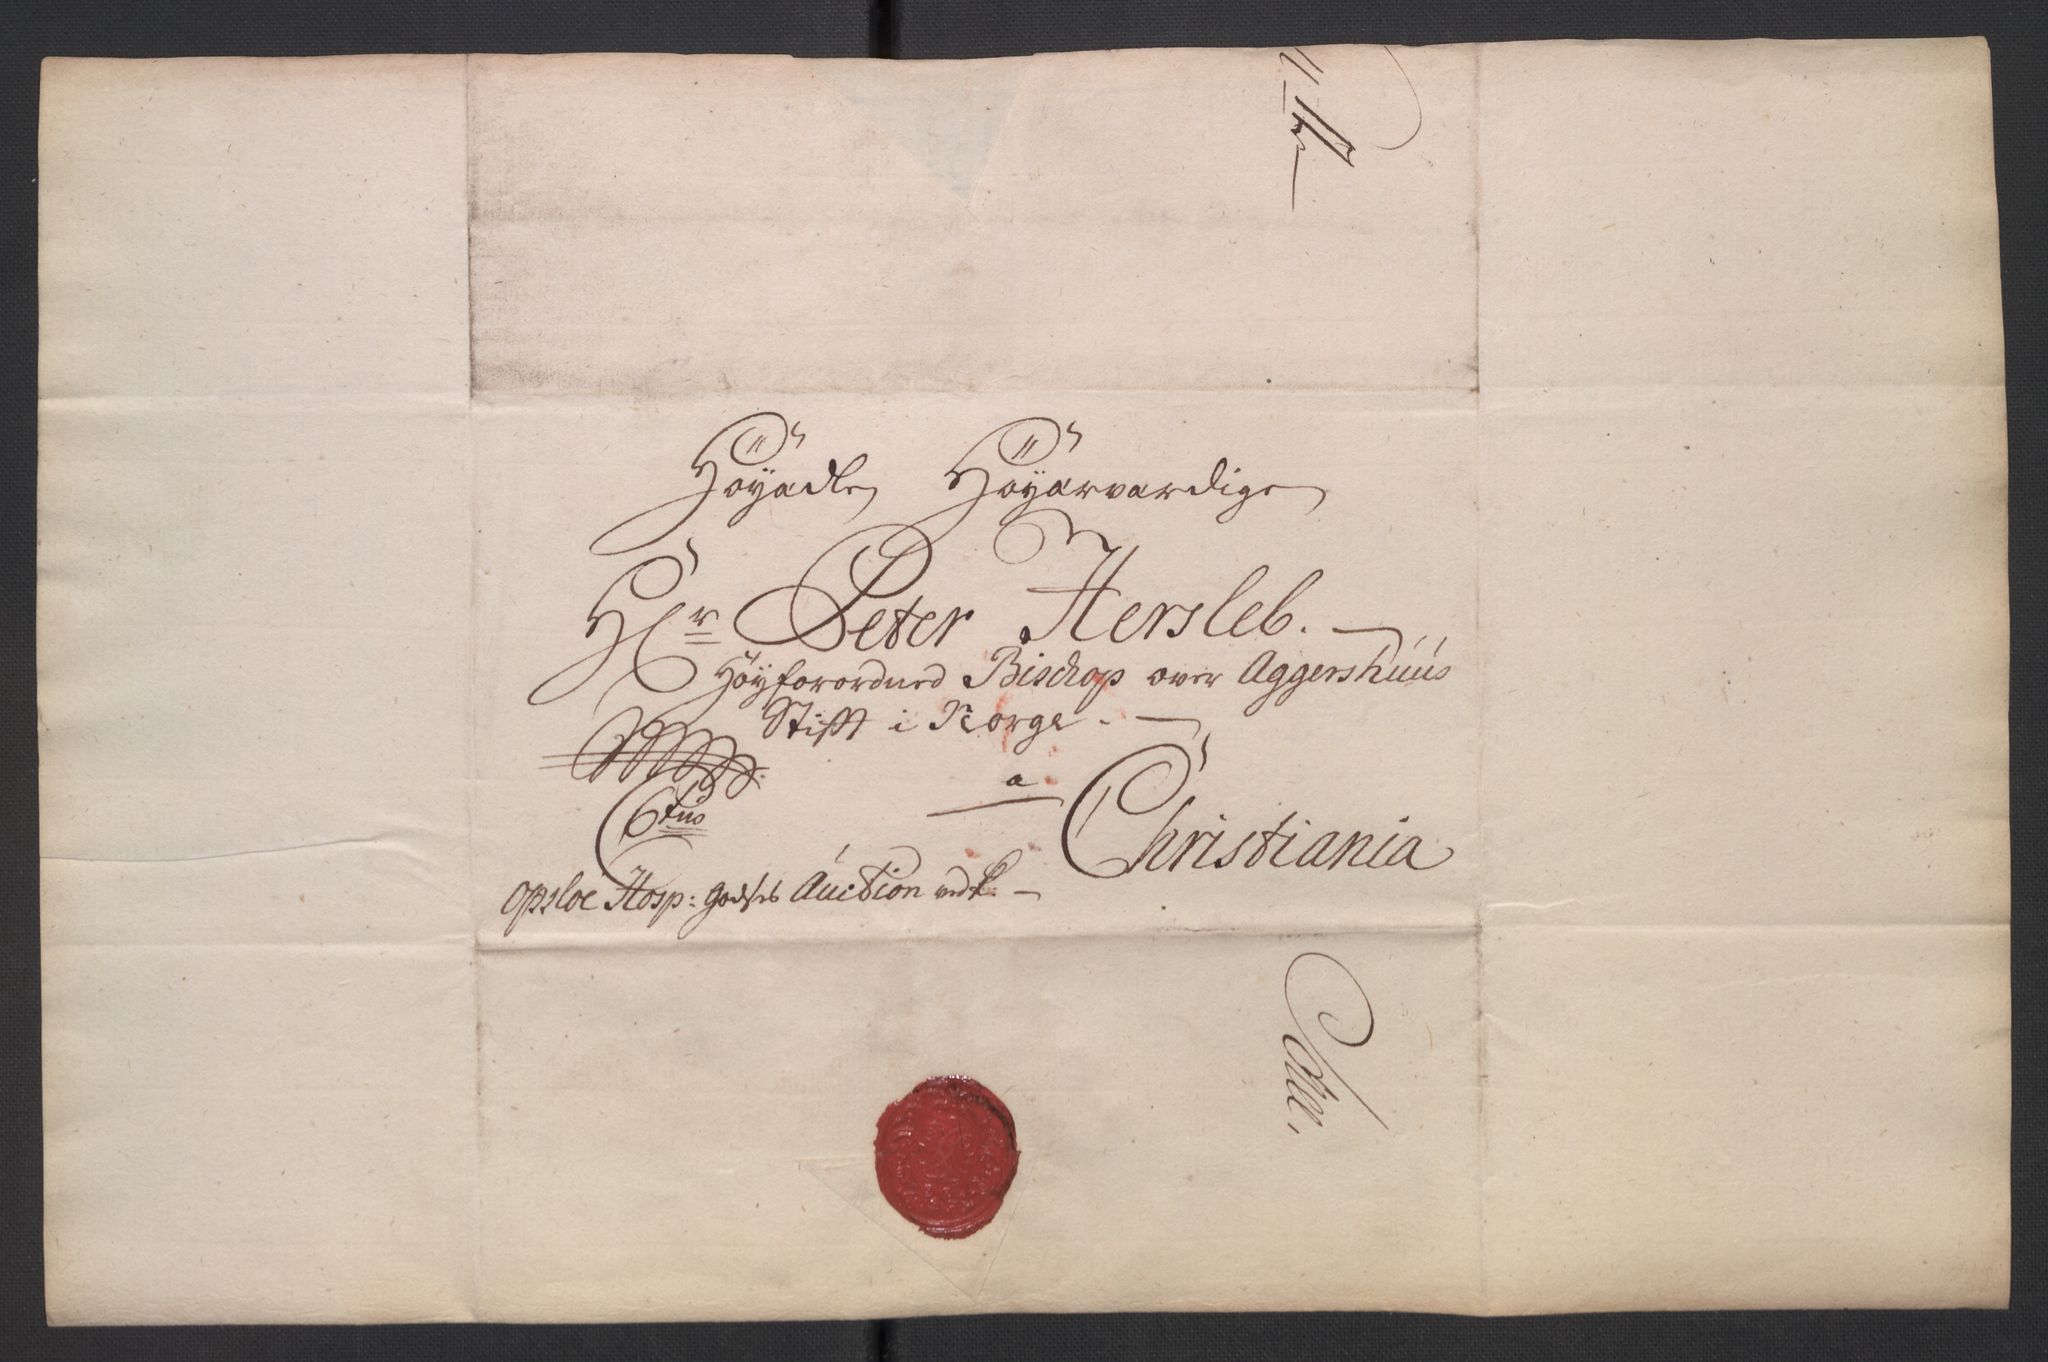 Höyædle Höyærværdige
Hr Peter Hersleb.
Höyforordned Bischop over Aggershuus
Stifft i Norge.
a
Christiania
Opsloe Hosp: Godses Auction vedk: